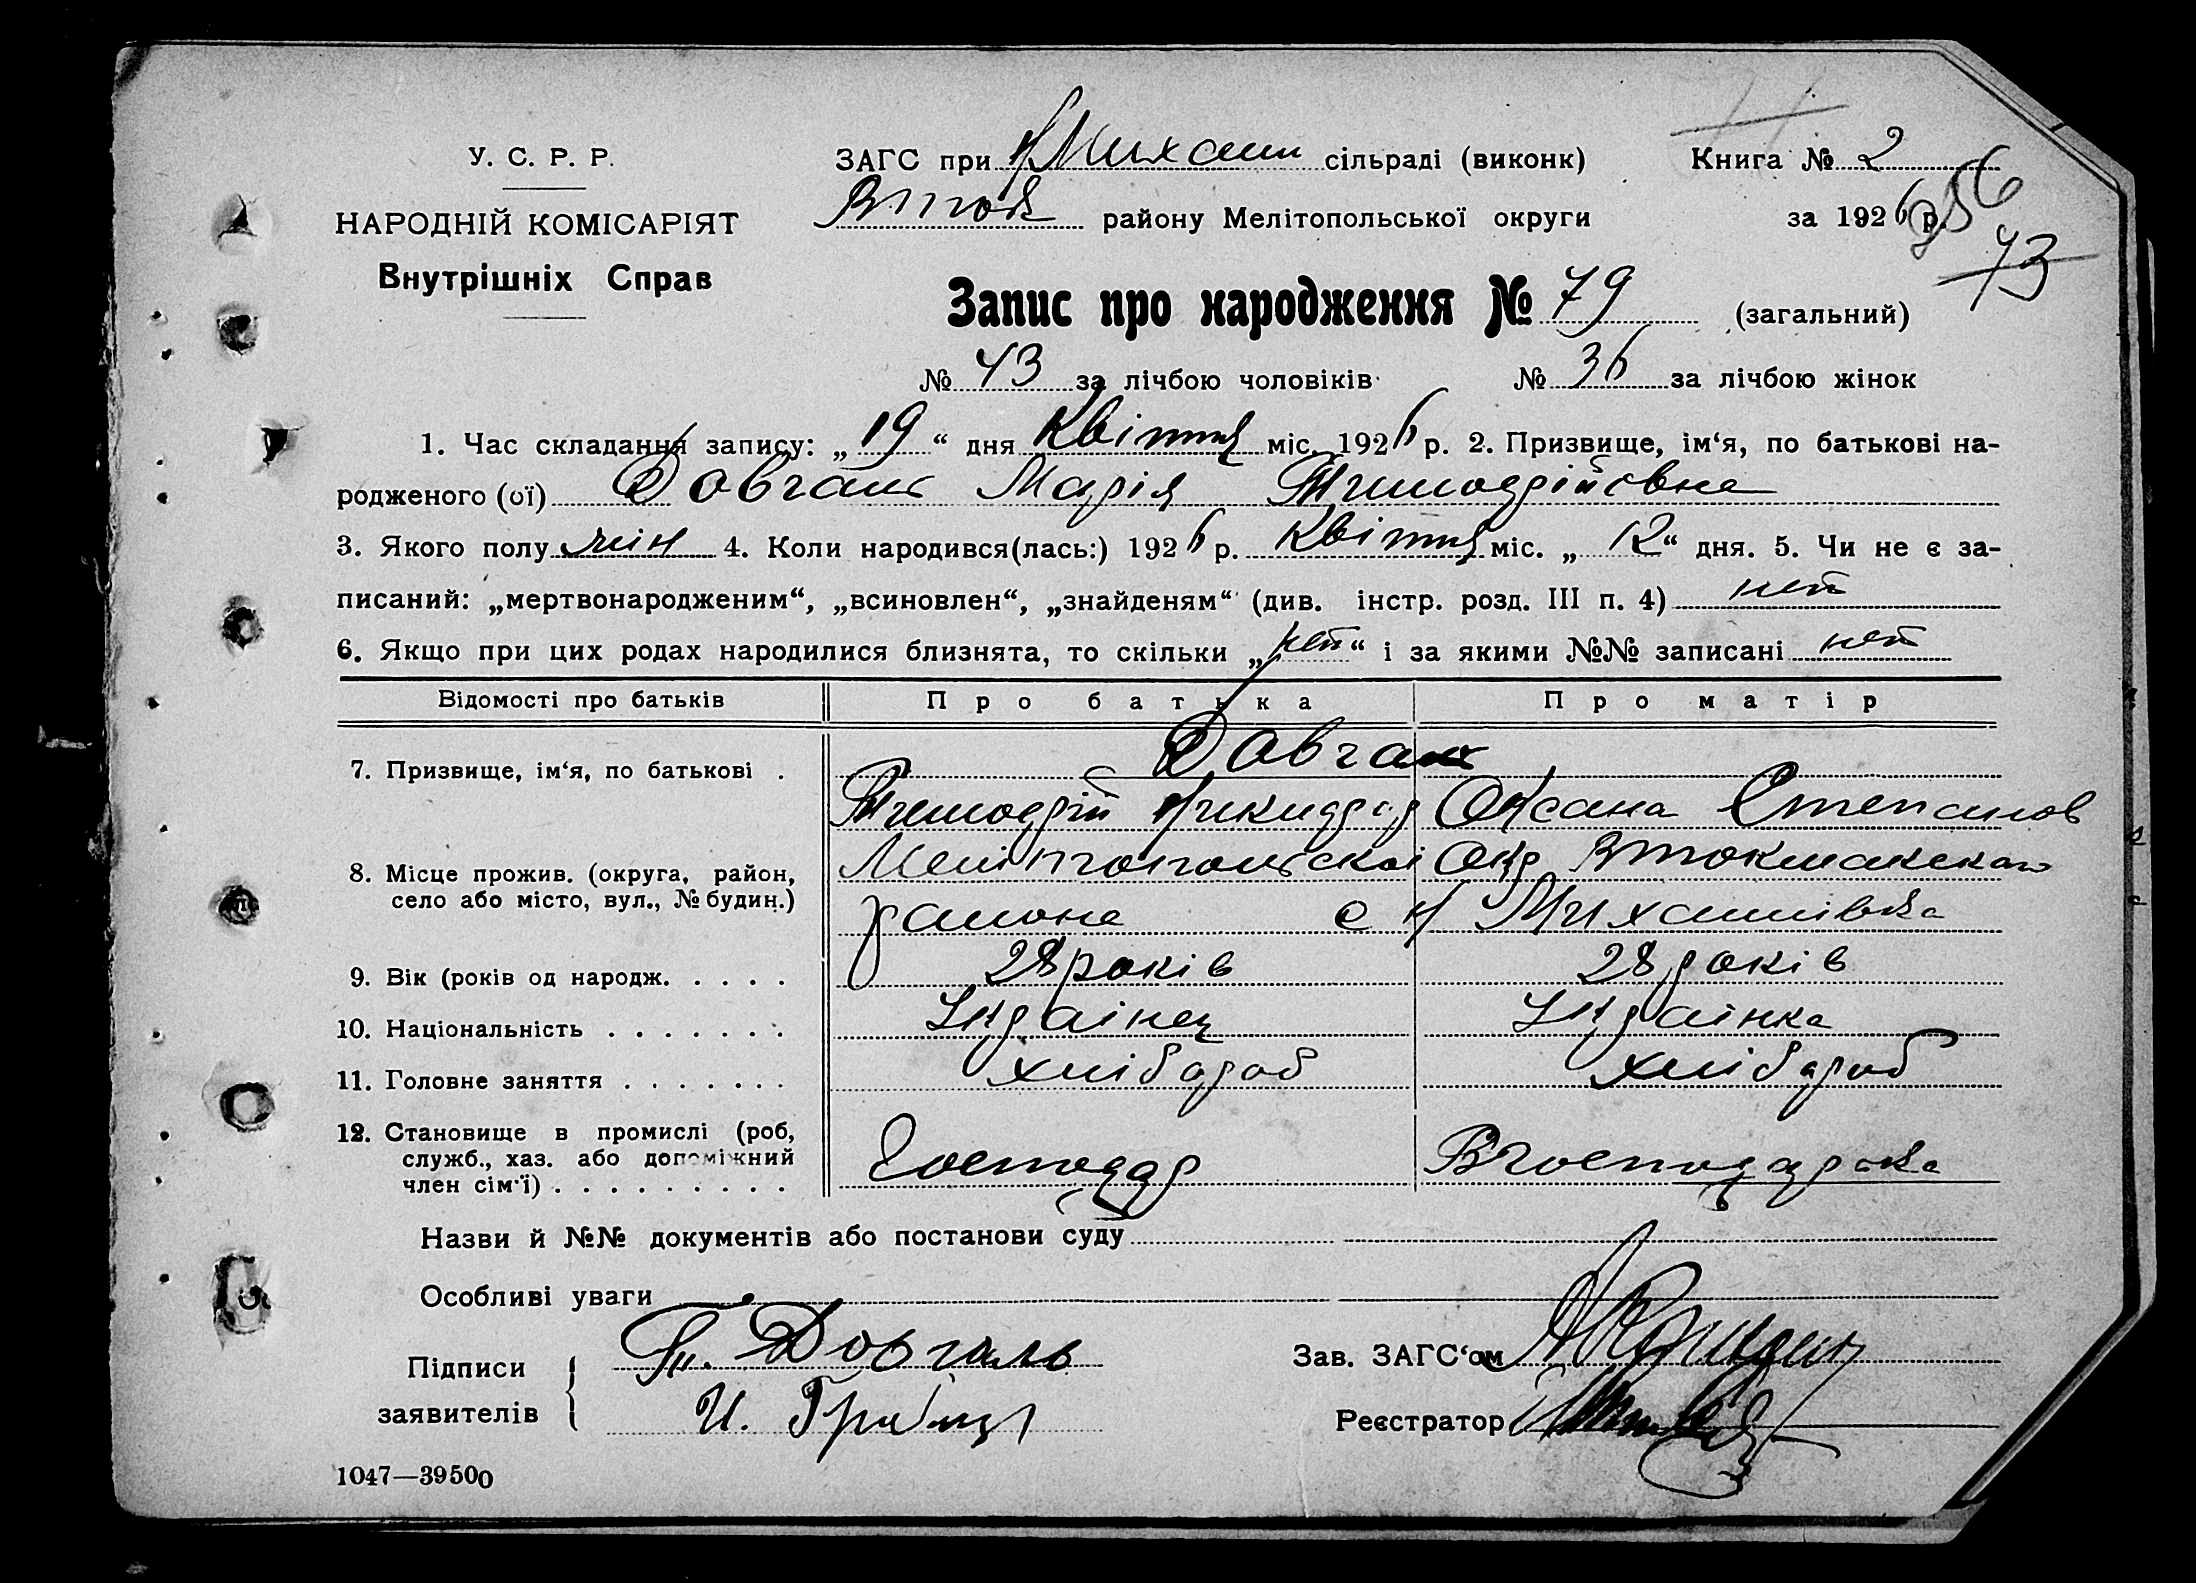 У. С. Р. Р.
НАРОДНІЙ КОМІСАРІЯТ
Внутрішніх Справ
ЗАГС при Н Михайл сільраді (виконк)
Вток району Мелітопольської округи
Книга № 2
за 1926 р.
73
Запис про народження № 79 (загальний)
№ 43 за лічбою чоловіків № 36 за лічбою жінок
1. Час складання запису: „19“ дня Квітня міс. 1926 р. 2. Призвище, ім‘я, по батькові на-
родженого (ої) Довгаль Марія Тимофійовна
3. Якого полу жін 4. Коли народився(лась:) 1926 р. Квітня міс. „12“ дня. 5. Чи не є за-
писаний: „мертвонародженим“, „всиновлен“, „знайденям“ (див. інстр. розд. III п. 4) нет
6. Якщо при цих родах народилися близнята, то скільки „нет“ і за якими №№ записані нет
Відомості про батьків Про батька Про матір
7. Призвище, ім‘я, по батькові . Довгаль
Тимофій Оксана Степанов
8. Місце прожив. (округа, район, Мелітопольскої Окр Втокмакского
село або місто, вул., № будин.) района с Н Михайлівка
9. Вік (років од народж. . . . . 28 років 28 років
10. Національність . . . . . . . Українец Українка
11. Головне заняття . . . . . . . хлібороб хлібороб
12. Становище в промислі (роб,
служб., хаз. або допоміжний
член сім‘ї) . . . . . . . . . Господар
Назви й №№ документів або постанови суду
Особливі уваги
Підписи
заявителів
Т. Довгаль
И.
Зав. ЗАГС‘ом
Реєстратор
1047—39500